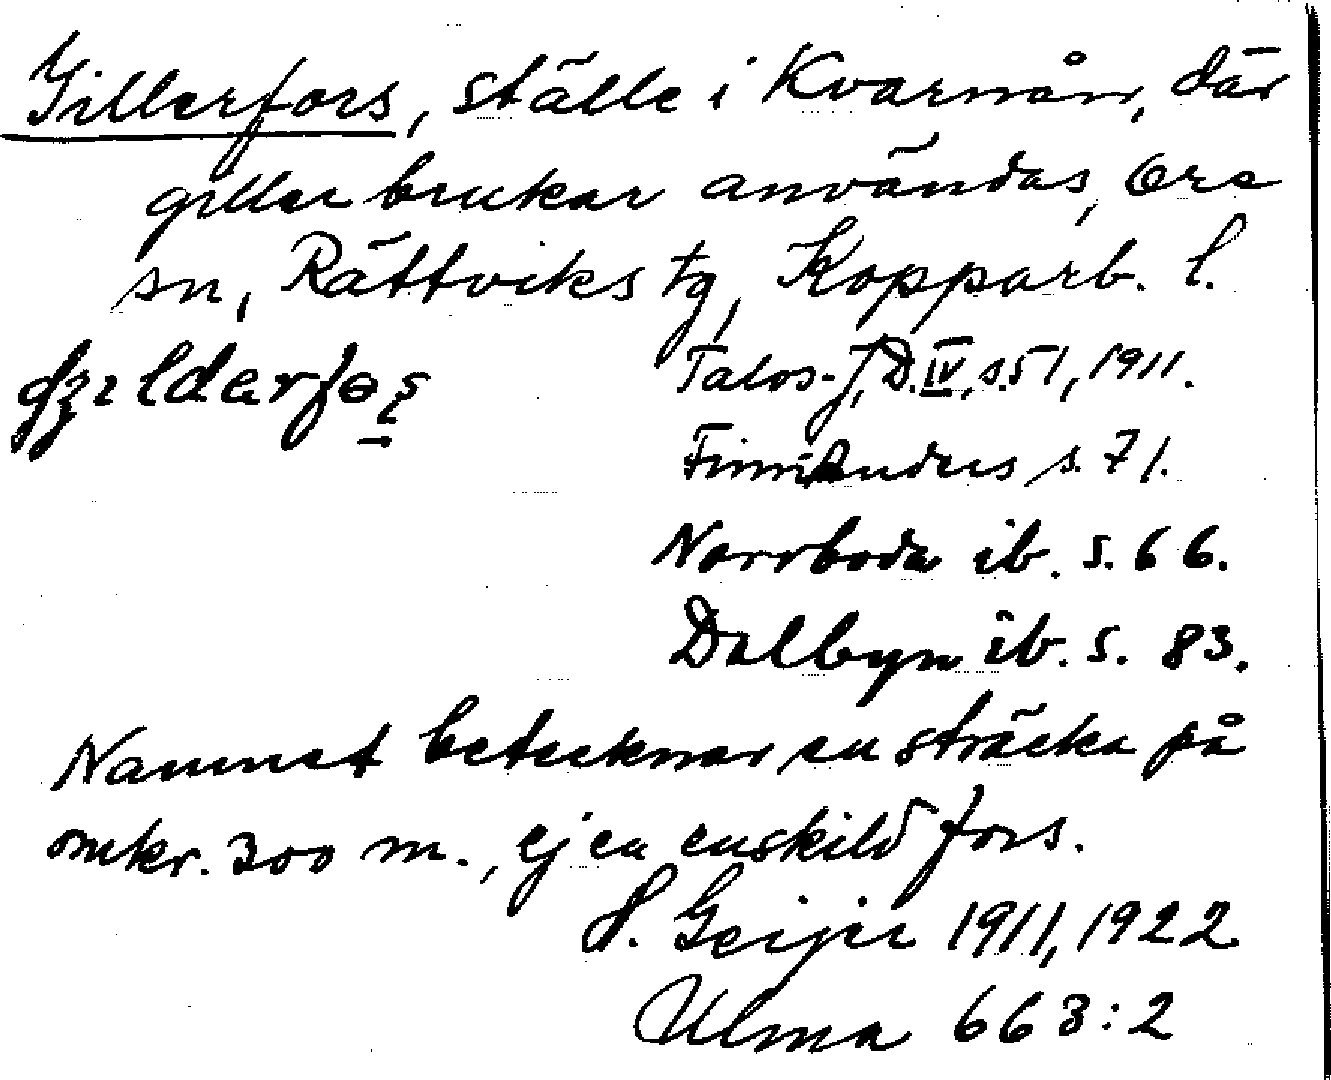 Gillerfors, ställe i Kvarnån, där
giller brukar användas, Ore
sn, Rättviks tg, Kopparb. l.
Talos-J, D. IV, s. 51, 1911.
Finnanders s. 71.
Norrboda ib. s. 66.
Dalbyn ib. s. 83.
Namnet betecknar en sträcka på
omkr. 300 m., ej en enskild fors.
H. Geijer 1911, 1922
Ulma 663:2